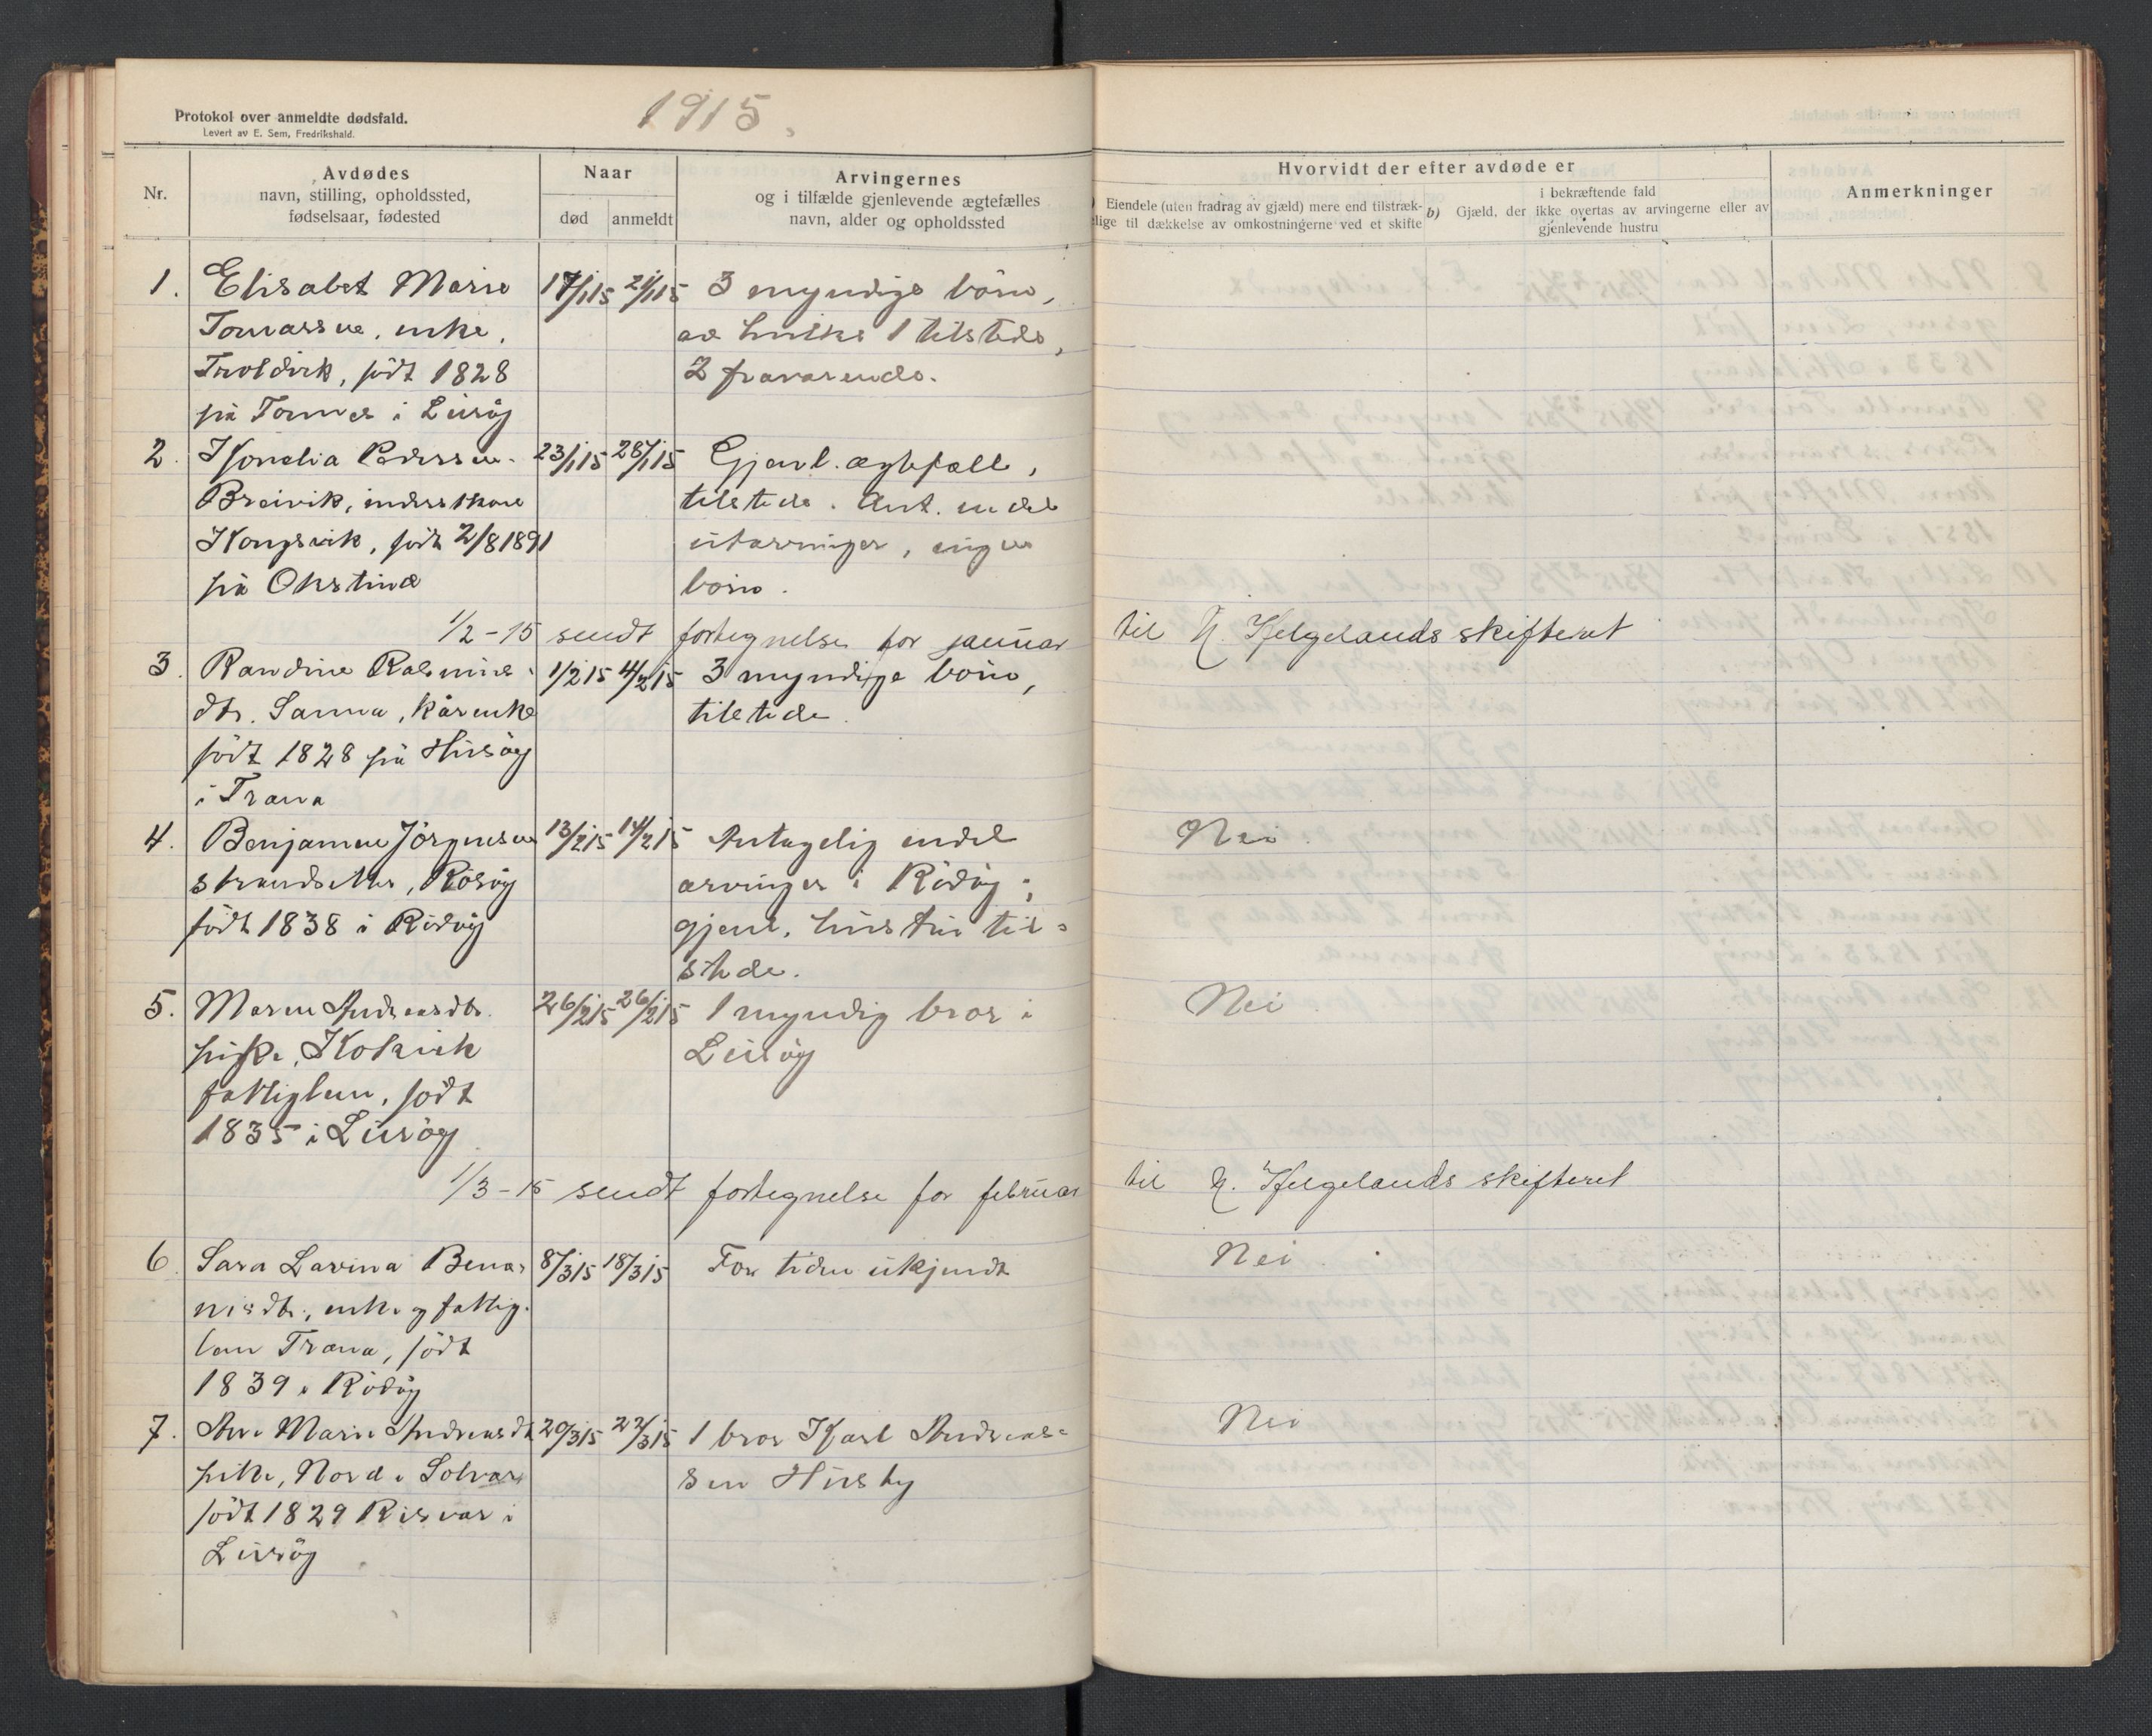 1915.
Protokol over anmeldte dødsfald.
Levert av E. Sem, Fredrikshald.
Nr.
Avdødes
navn, stilling, opholdssted,
fødselsaar, fødested
Naar
død
anmeldt
Arvingernes
og i tilfælde gjenlevende ægtefælles
navn, alder og opholdssted
Hvorvidt der efter avdøde er
Eiendele (uten fradrag av gjæld) mere end tilstræk-
lige til dækkelse av omkostningerne ved et skifte
b) Gjæld, der
i bekræftende fald
ikke overtas av arvingerne eller av
gjenlevende hustru
Anmerkninger
1. Elisabet Marie 17/1 15 21/1 15 3 myndige börn,
Tomassen, enke, av hvilke 1 tilstede,
Troldvik, födt 1828 2 fraværende.
på Tonnes i Luröy
2. Konelia Pedersen 23/1 15 28/1 15 Gjenl. ægtefælle,
Breivik, inderst tilstede. Ant. en del
Kongsvik, födt 2/8 1891 utarvinger, ingen
på Okstind börn.
1/2-15 sendt fortegnelse for januar til N. Helgelands skifteret
3. Randine Rasmus 1/2 15 4/2 15 3 myndige börn,
dtr. Sanna, kårenke tilstede.
födt 1828 på Husöy
i Træna
4. Benjamin Jörgensen 13/2 15 14/2 15 Antagelig endel Nei
strandsitter, Rosöy arvinger i Rödöy;
födt 1838 i Rödöy gjenl. hustru til-
stede.
5. Maren Andreasdtr. 26/2 15 26/2 15 1 myndig bror i Nei
pike, Kokvik Luröy
fattiglem, födt
1835 i Luröy
1/3-15 sendt fortegnelse for februar til N. Helgelands skifteret
6. Sara Lavina Benja- 8/3 15 18/3 15 For tiden ukjendt Nei
enke og fattig-
lem Træna, födt
1839 i Rödöy
7. Ane Marie Andreasdt 20/3 15 22/3 15 1 bror Karl Andreas- Nei
pike, Nord i Solvær sen Husby
födt 1829 Risvær i
Luröy